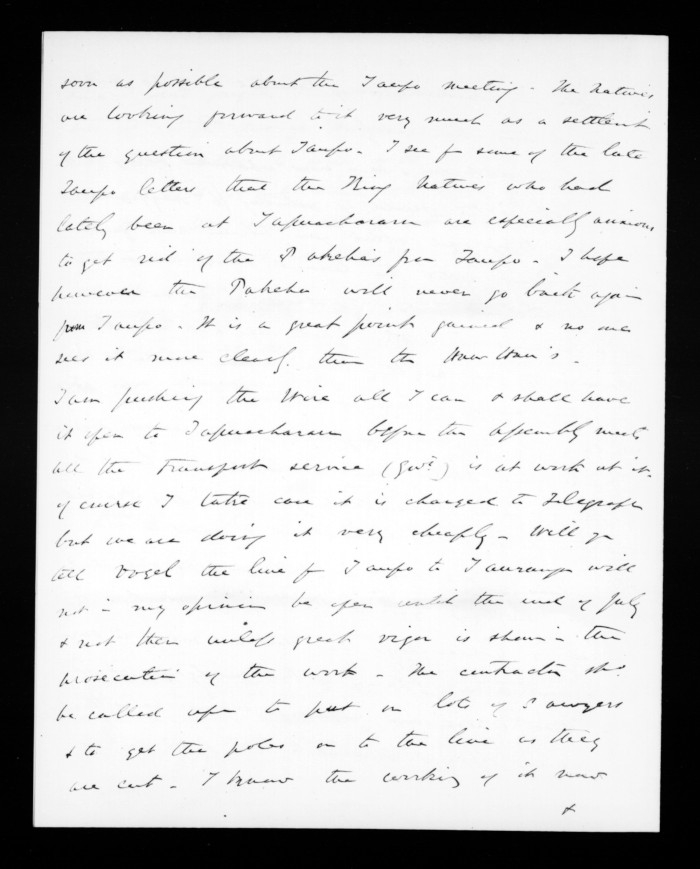 soon as possible about the Taupo meeting - The Natives
are looking forward to it very much as a settlent
of the question about Taupo - I see fm some of the late
Taupo letters that the King Natives who had
lately been at Tapuaeharuru are especially anxious
to get rid of the Pakehas from Taupo - I hope
however the Pakeha will never go back again
from Taupo - It is a great point gained & no one
sees it more clearly than the Hau Hau's -
I am pushing the Wire all I can & shall have
it open to Tapuaeharuru before the Assembly meets
all the Transport service (Govt) is at work at it.
of course I take care it is charged to Telegraph
but we are doing it very cheaply - Will you
tell Vogel the line fm Taupo to Tauranga will
not in my opinion be open until the end of July
& not then unless great vigor is shown in the
prosecution of the work - The contractor shd
be called upon to put on lots of Sawyers
& to get the poles on to the line as they
are cut - I know the working of it now
&